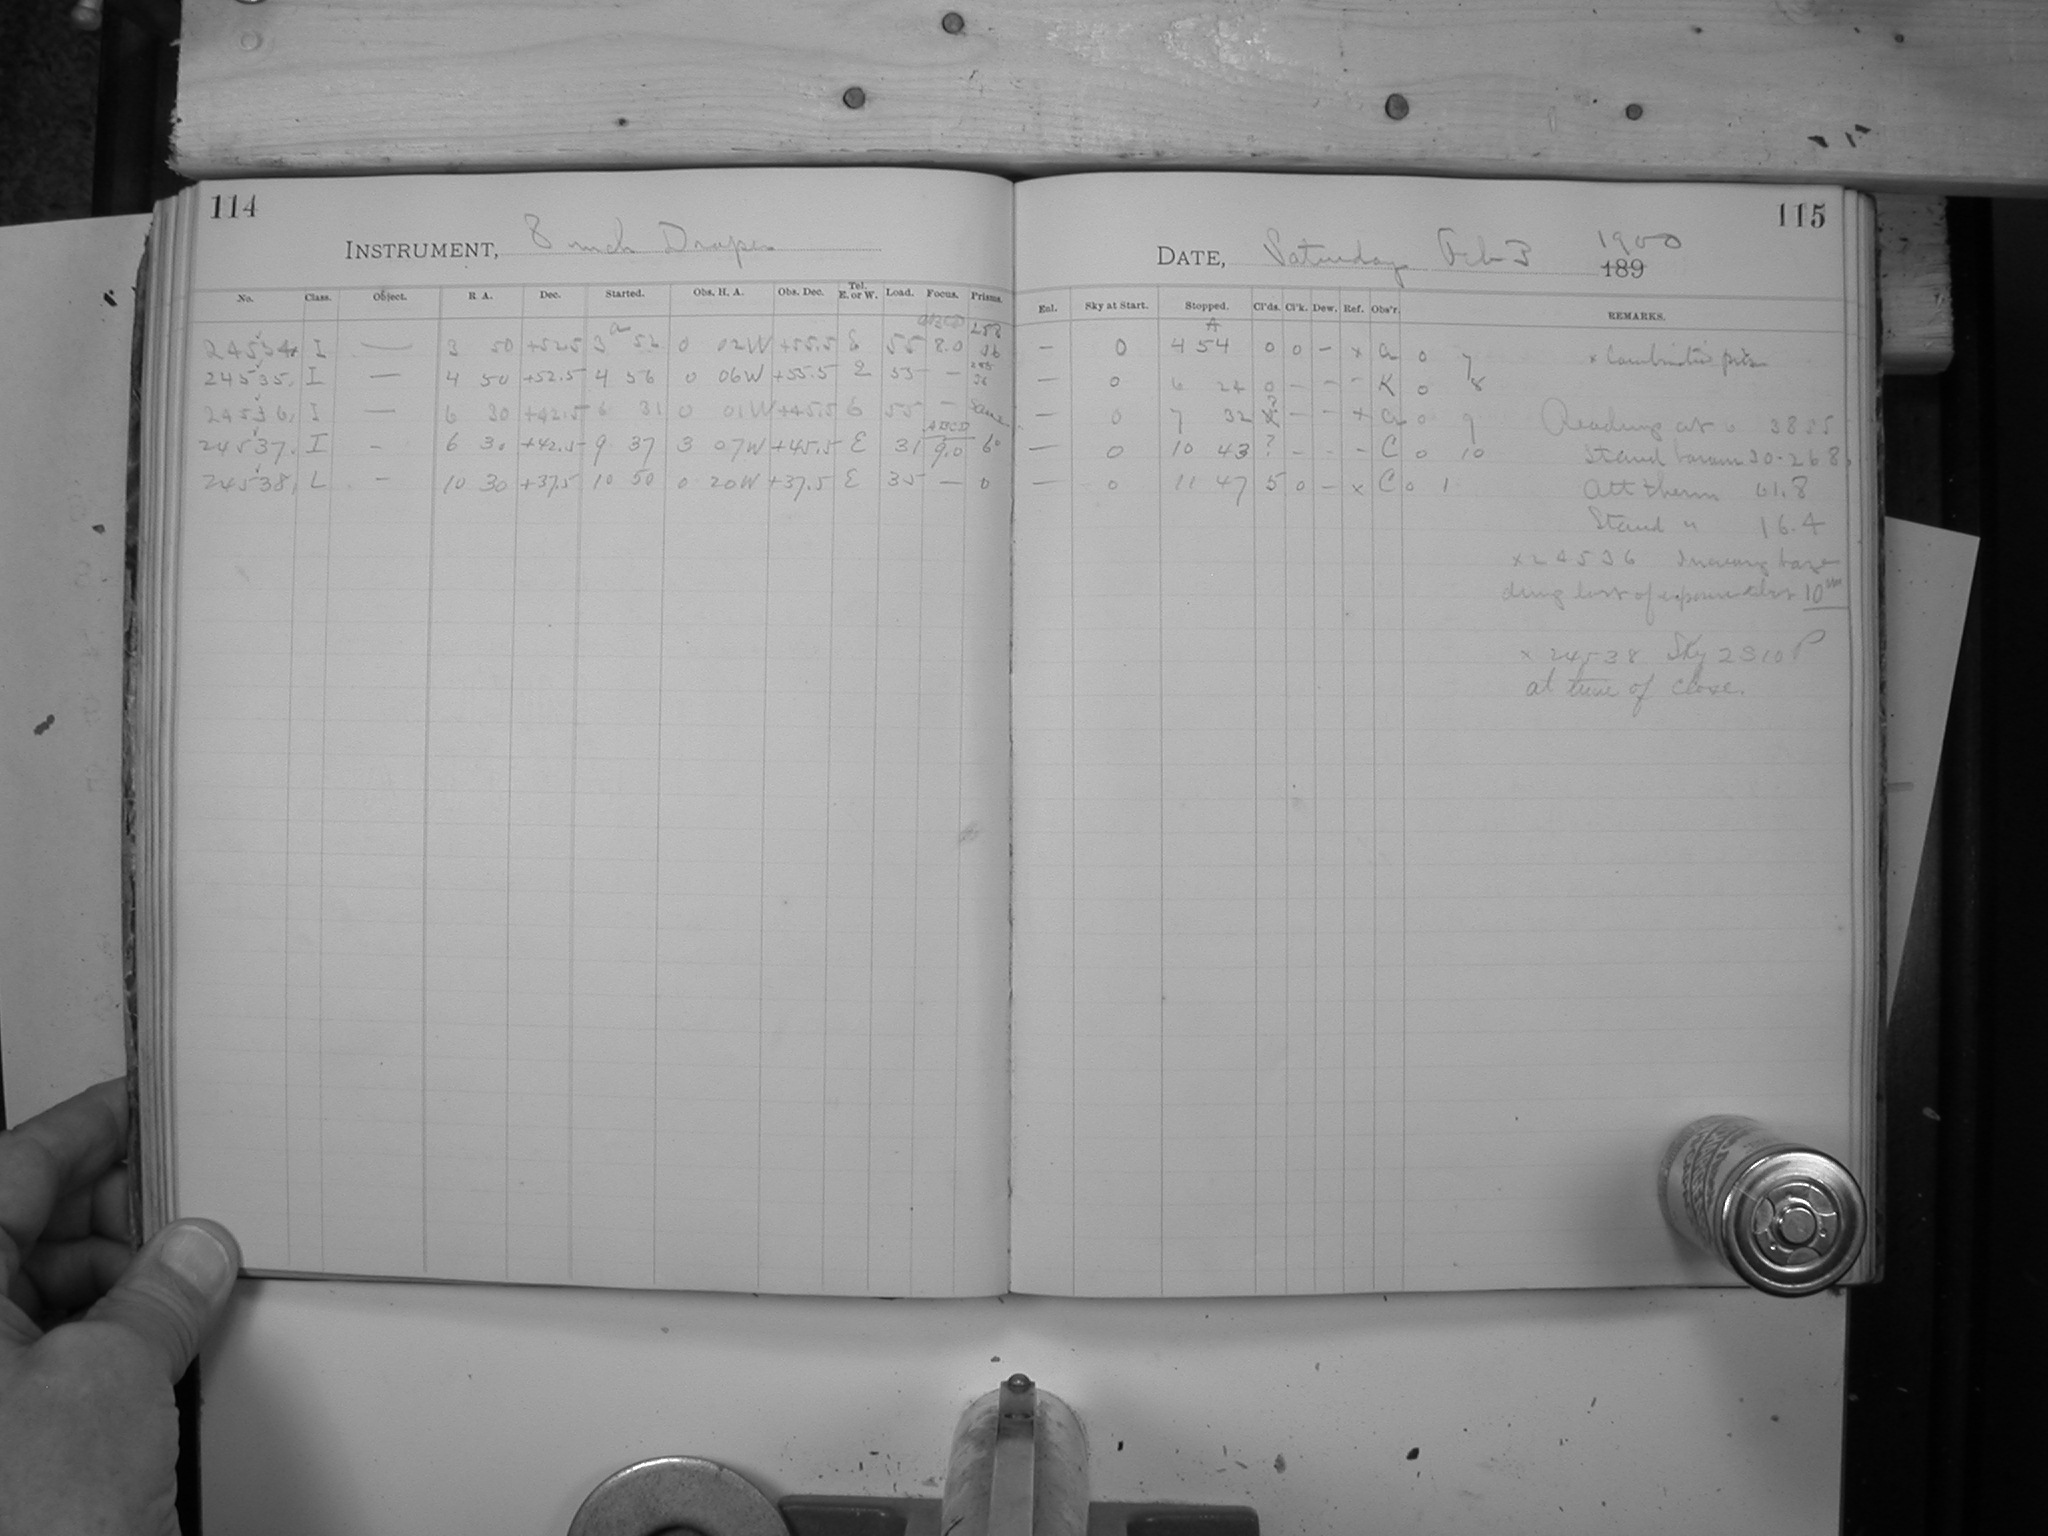 114
INSTRUMENT, 8 inch Draper
No. Class. Object. R A. Dec. Started. Obs. H. A. Obs. Dec. Tel. E. or W. Load. Focus. Prisms.
24534 I — 3 50 +52.5 3 52 0 02W +55.5 E 55 8.0
24535, I — 4 50 +52.5 4 56 0 06W +55.5 E 55 —
24536, I — 6 30 +42.5 6 31 0 01W +45.5 E 55 — Same
ABCD
24537. I - 6 30 +42.5 9 37 3 07W +45.5 E 31 9.0 60
24538, L - 10 30 +37.5 10 50 0 20W +37.5 E 35 — 0
115
DATE, Saturday Feb 3 1900
189
Enl. Sky at Start. Stopped. Cl'ds. Cl'k. Dew. Ref. Obs'r. REMARKS.
— 0 4 54 0 0 - x a 0 7
— 0 6 24 0 - - - K 0 8
— 0 7 32 - - x a 0 9 Reading at
— 0 10 43 ? - - - C 0 10 Stand barom 30.268
— 0 11 47 5 0 - x C 0 1 Att therm 61.8
Stand " 16.4
x 24536
loss of exposure 10m
x 24538 Sky 2S10P
at time of close.